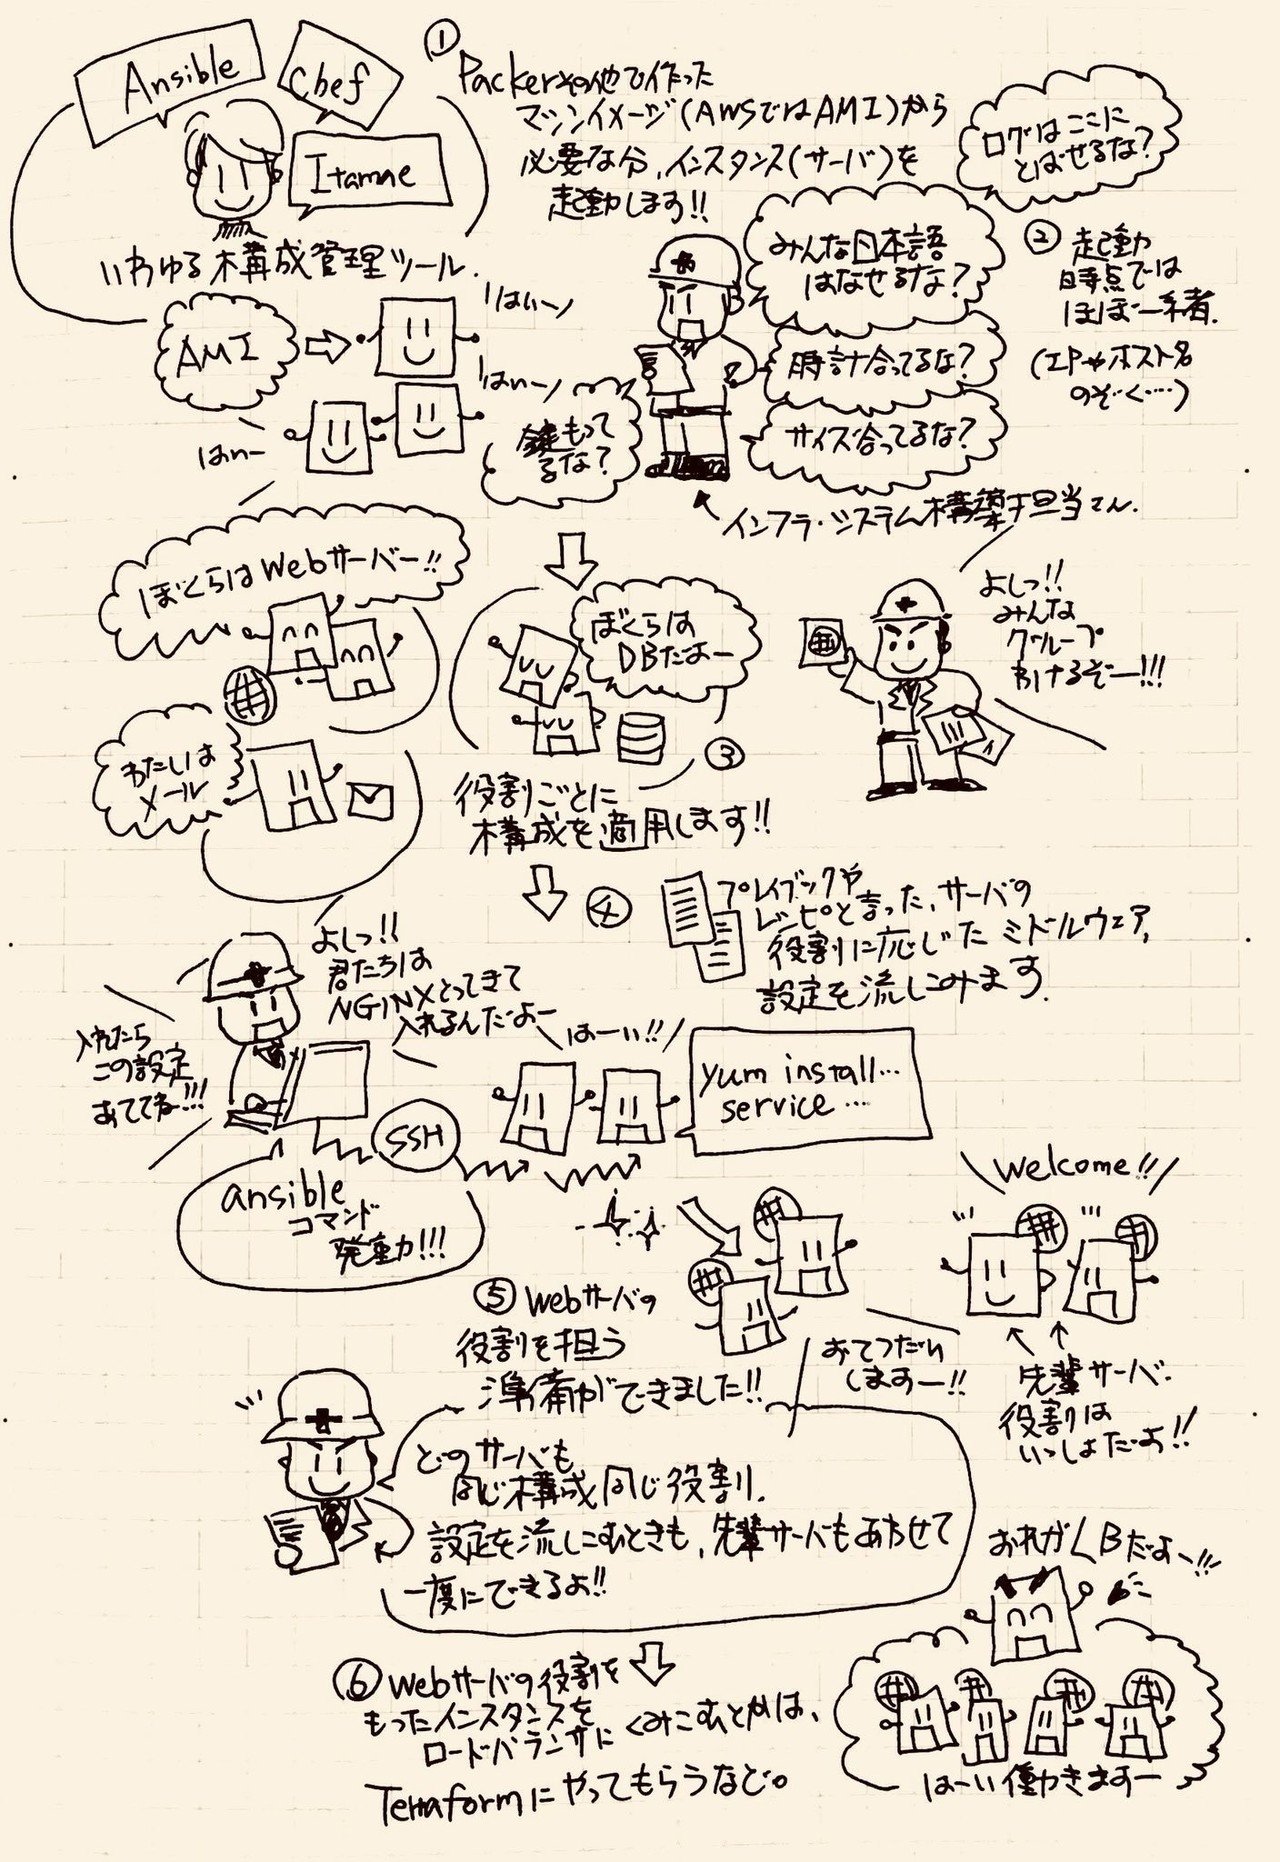 Ansible
Chef
Itamae
いわゆる構成管理ツール.
① Packerその他で作った
マシンイメージ(AWSではAMI)から
必要な分,インスタンス(サーバ)を
起動します!!
AMI
はいー
はいー
はいー
ログはここに
とばせるな?
みんな日本語
はなせるな?
時計合ってるな?
サイズ合ってるな?
鍵もって
るな?
② 起動
時点では
ほぼ一緒.
(IPやホスト名
のぞく…‥)
インフラ・システム構築担当てん.
ぼくらはWebサーバー!!
ぼくらは
DBだよー
わたしは
メール
よしっ!!
みんな
グループ
わけるぞー!!!
③
役割ごとに
構成を適用します!!
④ プレイブックや
レシピと言った,サーバの
役割に応じたミドルウェア,
設定を流しこみます.
よしっ!!
君たちは
NGINXとってきて
入れるんだよー
入れたら
この設定
あててね!!!
はーい!!
yum install…
service…
SSH
ansible
コマンド
発動!!!
Welcome!!!
⑤ Webサーバの
役割を担う
準備ができました!!
おてつだい
しますー!!
先輩サーバ.
役割は
いっしょだよ!!
どのサーバも
同じ構成同じ役割.
設定を流しこむときも,先輩サーバもあわせて
一度にできるよ!!
おれがLBだよー!!!
⑥ Webサーバの役割を
もったインスタンスを
ロードバランサに くみこむとかは、
Terraformにやってもらうなど。
はーい働きますー